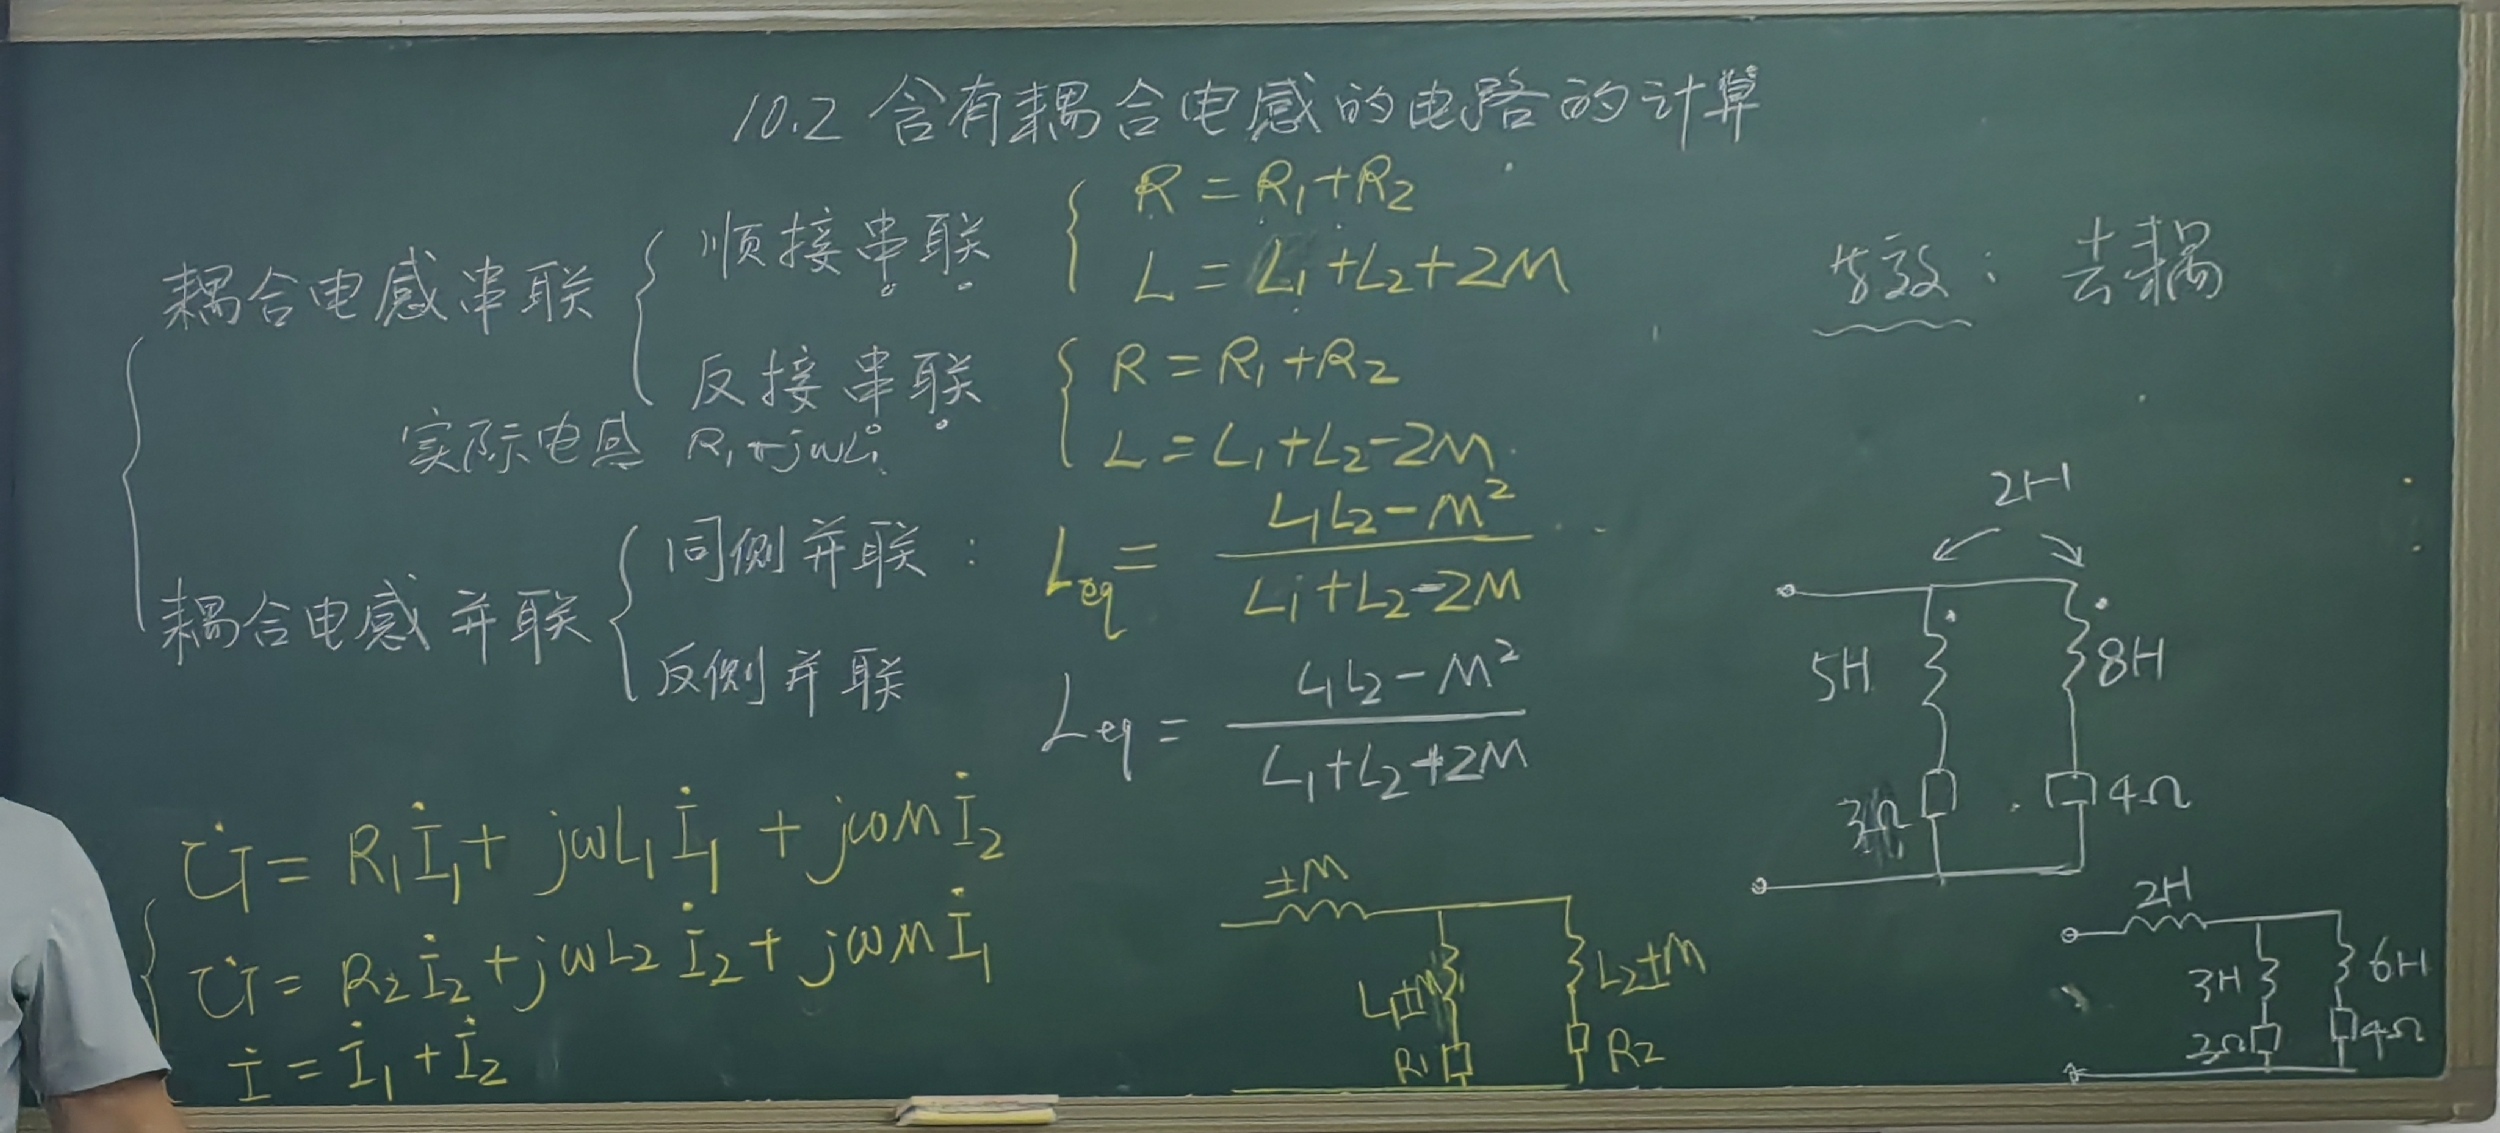 10.2 含有耦合电感的电路的计算
耦合电感串联
顺接串联
R = R₁+R₂
L = L₁+L₂+2M
反接串联
R = R₁+R₂
L = L₁+L₂-2M
实际电感 R₁+jωL₁
耦合电感并联
同侧并联:
Leq = (L₁L₂-M²)/(L₁+L₂-2M)
反侧并联
Leq = (L₁L₂-M²)/(L₁+L₂+2M)
U̇ = R₁İ₁ + jωL₁İ₁ + jωMİ₂
U̇ = R₂İ₂ + jωL₂İ₂ + jωMİ₁
İ = İ₁ + İ₂
±M
L₁±M
L₂±M
R1
R2
: 去耦
2H
5H
8H
3Ω
4Ω
2H
3H
6H
3Ω
4Ω